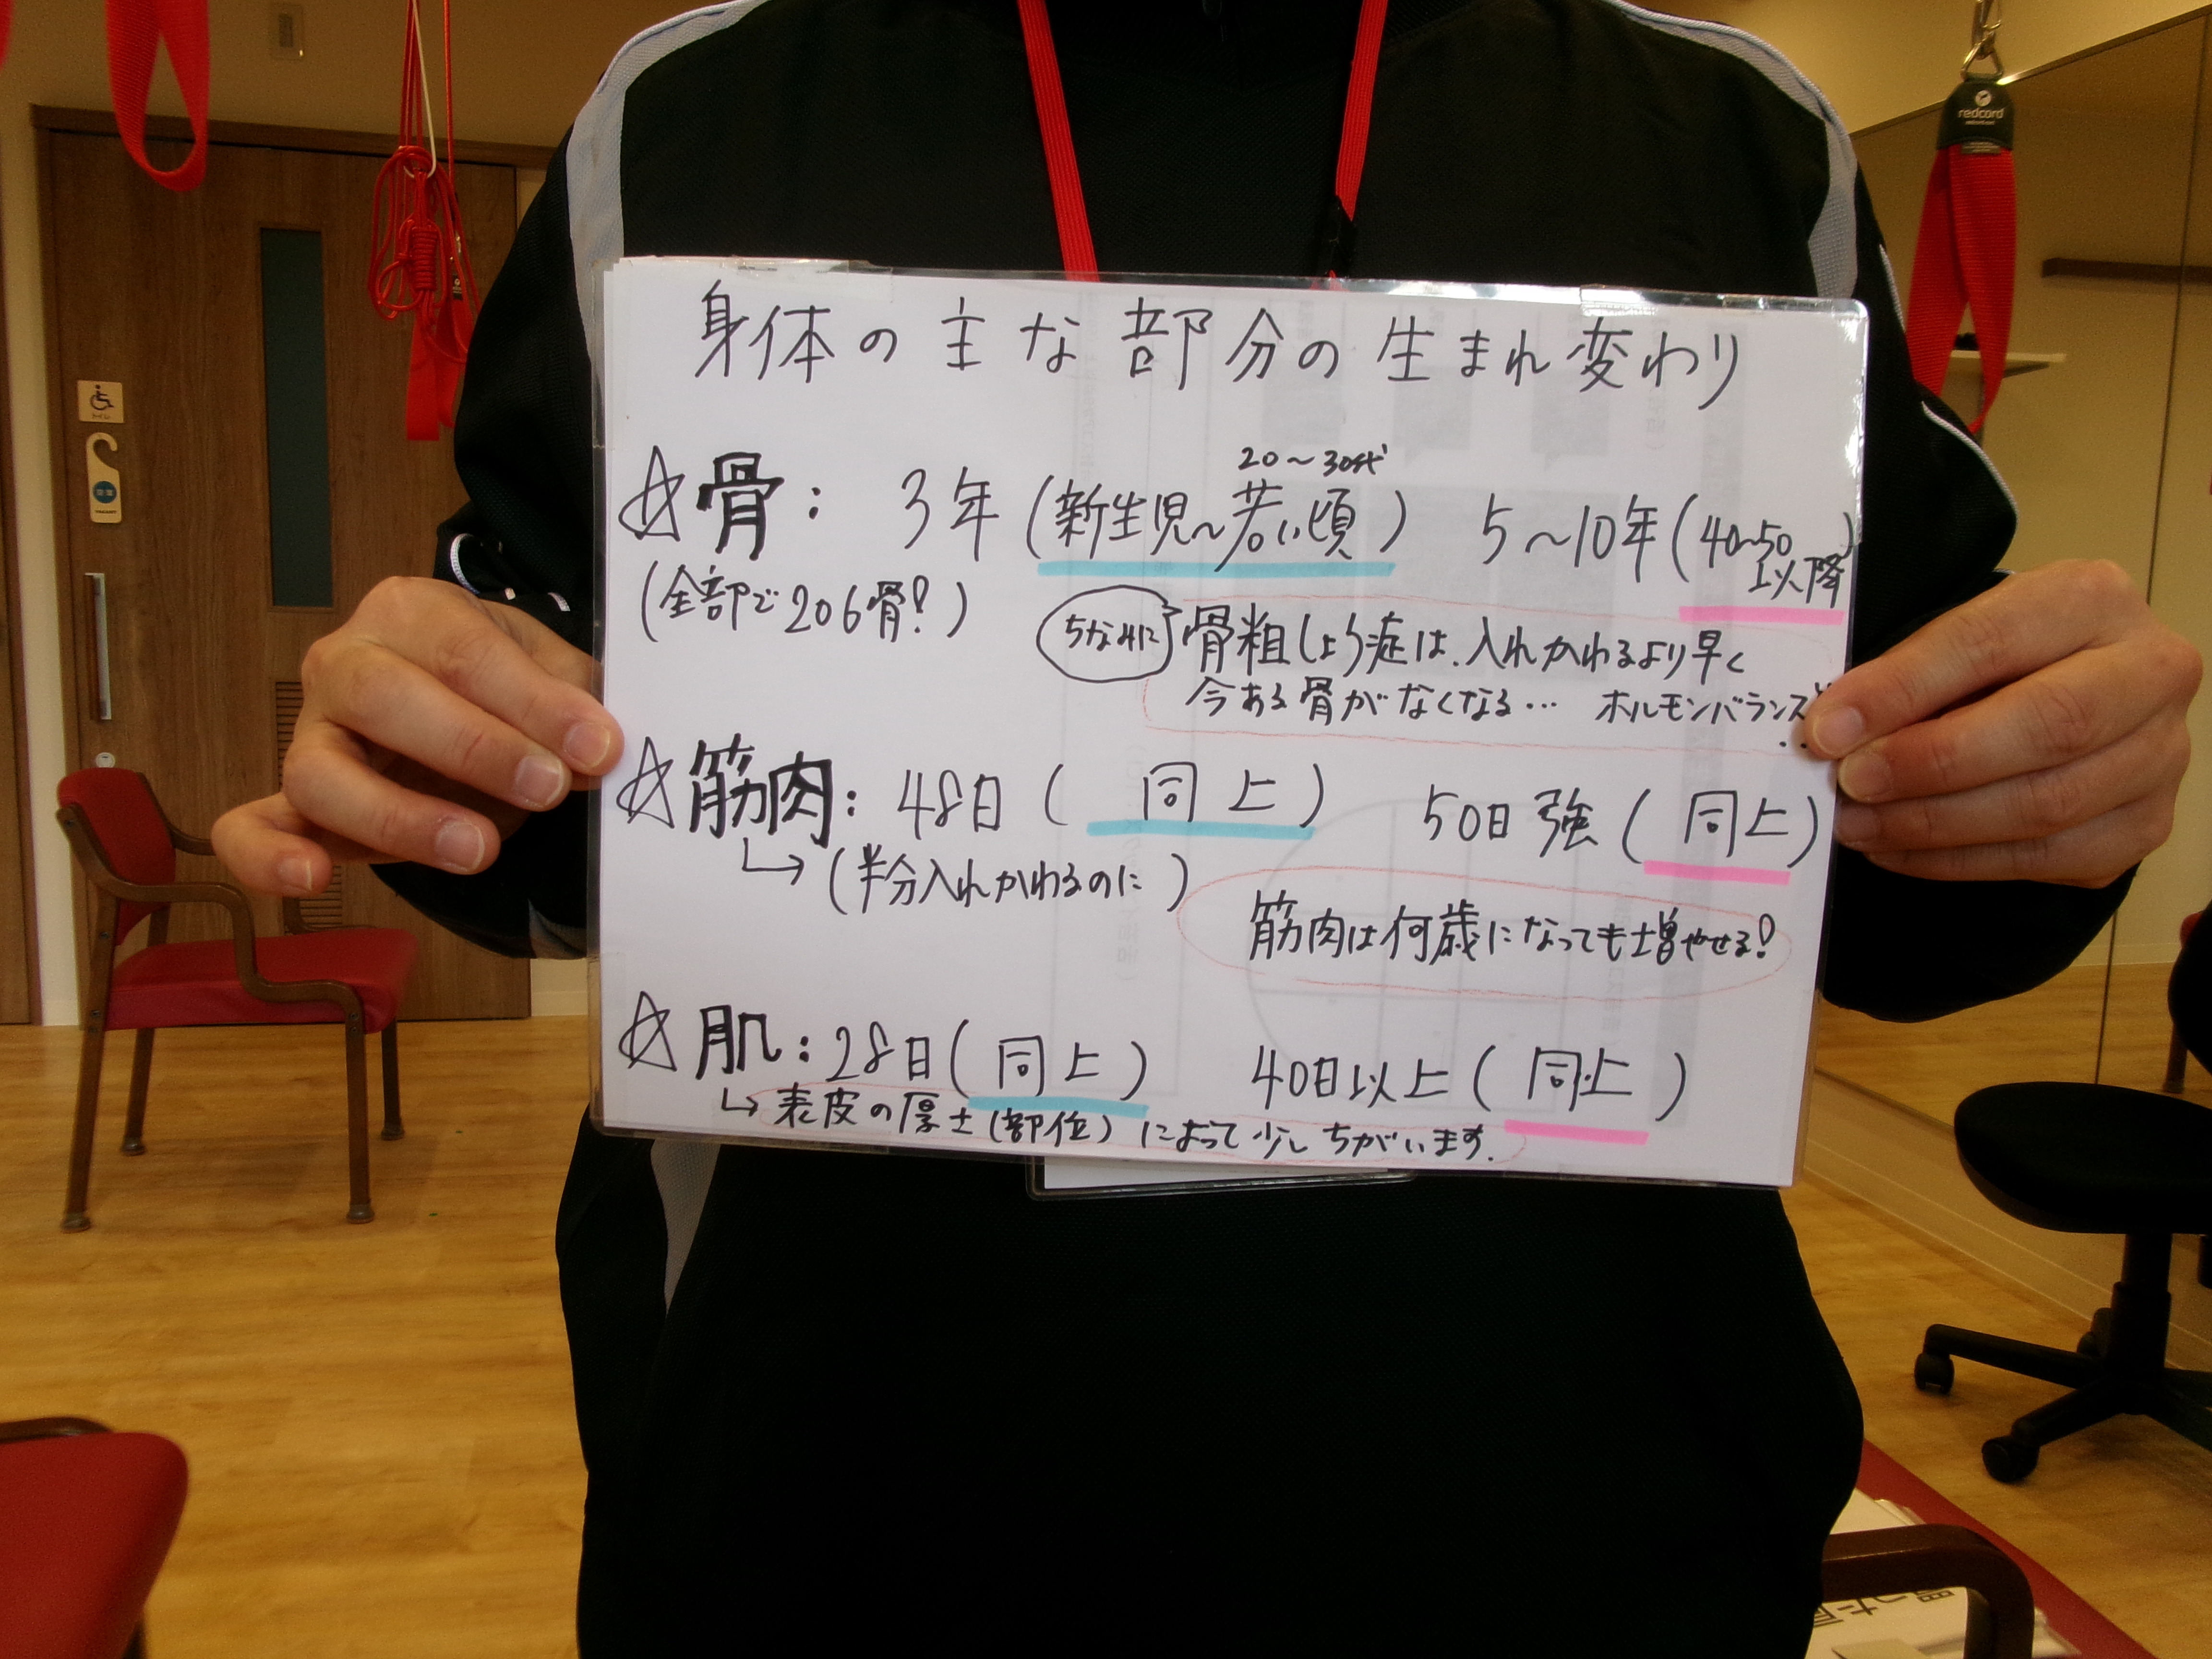 redcord
身体の主な部分の生まれ変わり
20〜30代
☆骨: 3年(新生児〜若い頃) 5〜10年(40〜50以降)
(全部で206骨!)
ちなみに 骨粗しょう症は、入れかわるより早く
今ある骨がなくなる… ホルモンバランス
☆筋肉: 48日(同上) 50日強(同上)
↳(半分入れかわるのに)
筋肉は何歳になっても増やせる!
☆肌:28日(同上) 40日以上(同上)
↳表皮の厚さ(部位)によって少しちがいます.